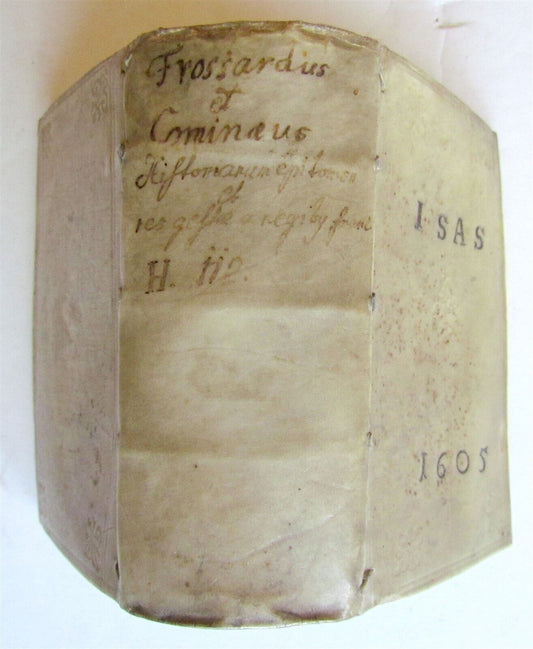 Frossardius
et
Cominæus
Historiarum epitomen
et
res gestæ a regibg franc
H. 112.
I SAS
1605